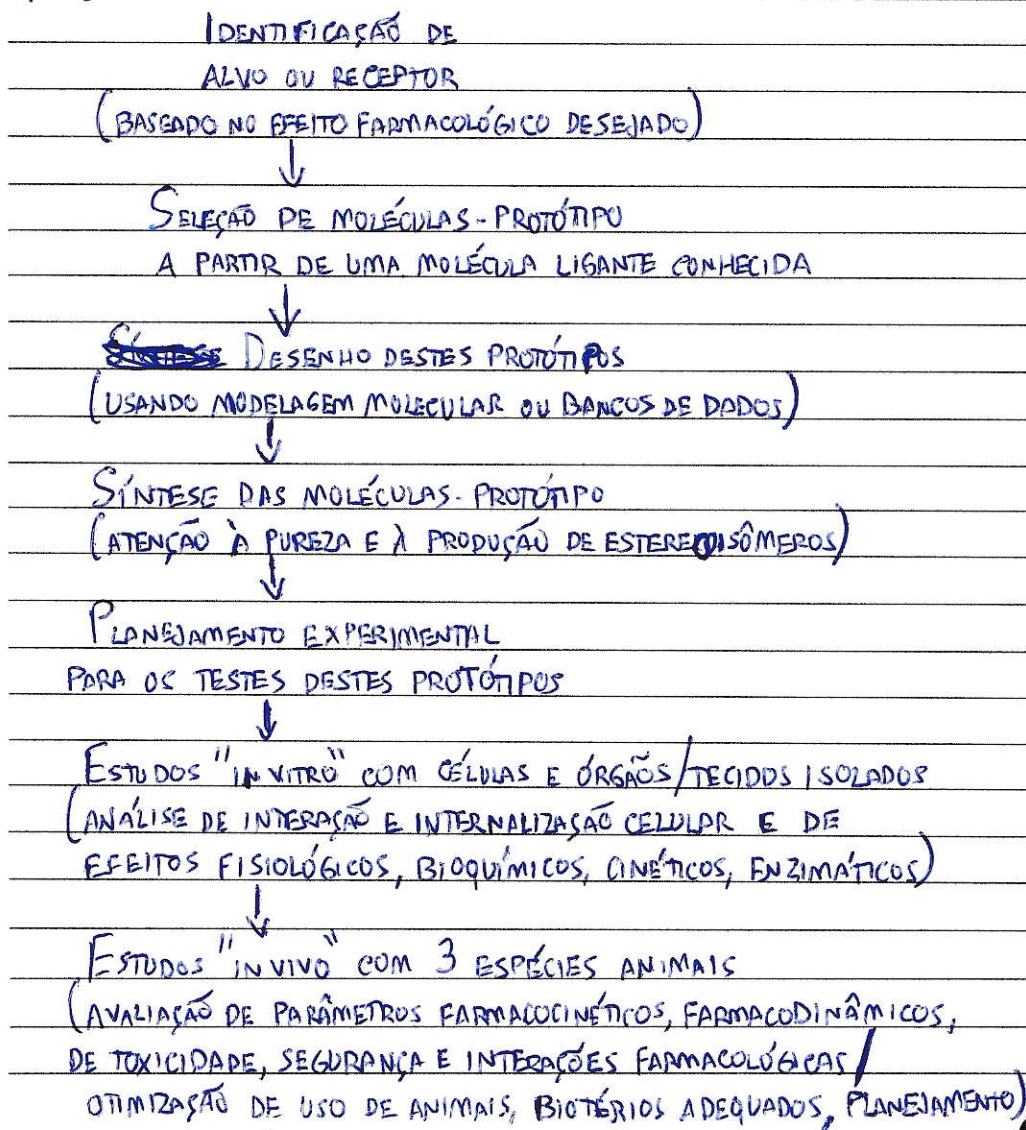 IDENTIFICAÇÃO DE
ALVO OU RECEPTOR
(BASEADO NO EFEITO FARMACOLÓGICO DESEJADO)
↓
SELEÇÃO DE MOLÉCULAS-PROTÓTIPO
A PARTIR DE UMA MOLÉCULA LIGANTE CONHECIDA
↓
DESENHO DESTES PROTÓTIPOS
(USANDO MODELAGEM MOLECULAR OU BANCOS DE DADOS)
↓
SÍNTESE DAS MOLÉCULAS-PROTÓTIPO
(ATENÇÃO À PUREZA E À PRODUÇÃO DE ESTEREOISÔMEROS)
↓
PLANEJAMENTO EXPERIMENTAL
PARA OS TESTES DESTES PROTÓTIPOS
↓
ESTUDOS "IN VITRO" COM CÉLULAS E ÓRGÃOS/TECIDOS ISOLADOS
(ANÁLISE DE INTERAÇÃO E INTERNALIZAÇÃO CELULAR E DE
EFEITOS FISIOLÓGICOS, BIOQUÍMICOS, CINÉTICOS, ENZIMÁTICOS)
↓
ESTUDOS "IN VIVO" COM 3 ESPÉCIES ANIMAIS
(AVALIAÇÃO DE PARÂMETROS FARMACOCINÉTICOS, FARMACODINÂMICOS,
DE TOXICIDADE, SEGURANÇA E INTERAÇÕES FARMACOLÓGICAS/
OTIMIZAÇÃO DE USO DE ANIMAIS, BIOTÉRIOS ADEQUADOS, PLANEJAMENTO)